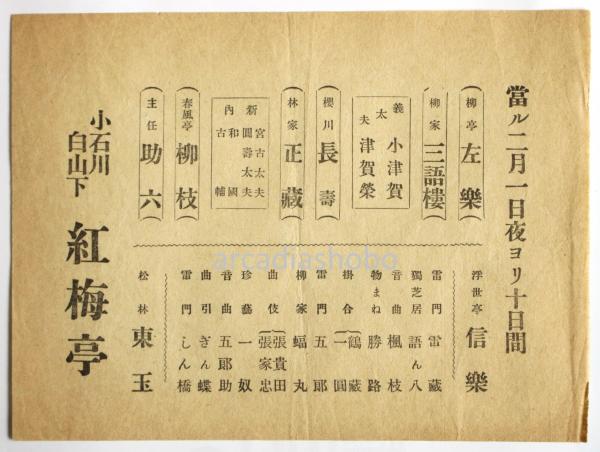 當ル二月一日夜ヨリ十日間
柳亭 左樂
柳家 三語樓
義太夫 小津賀 津賀榮
櫻川 長壽
林家 正藏
新内 宮古太夫 圓壽太夫 和國 古輔
春風亭 柳枝
主任 助六
浮世亭 信樂
雷門 雷藏
獨芝居 語ん八
音曲 楓枝
物まね 勝路
掛合 鶴藏 一圓
雷門 五郎
柳家 蝠丸
曲伎 張貴田 張家忠
珍藝 一奴
音曲 五郎助
曲引 ぎん蝶
雷門 しん橋
松林 東玉
小石川
白山下
紅梅亭
arcadiashobo